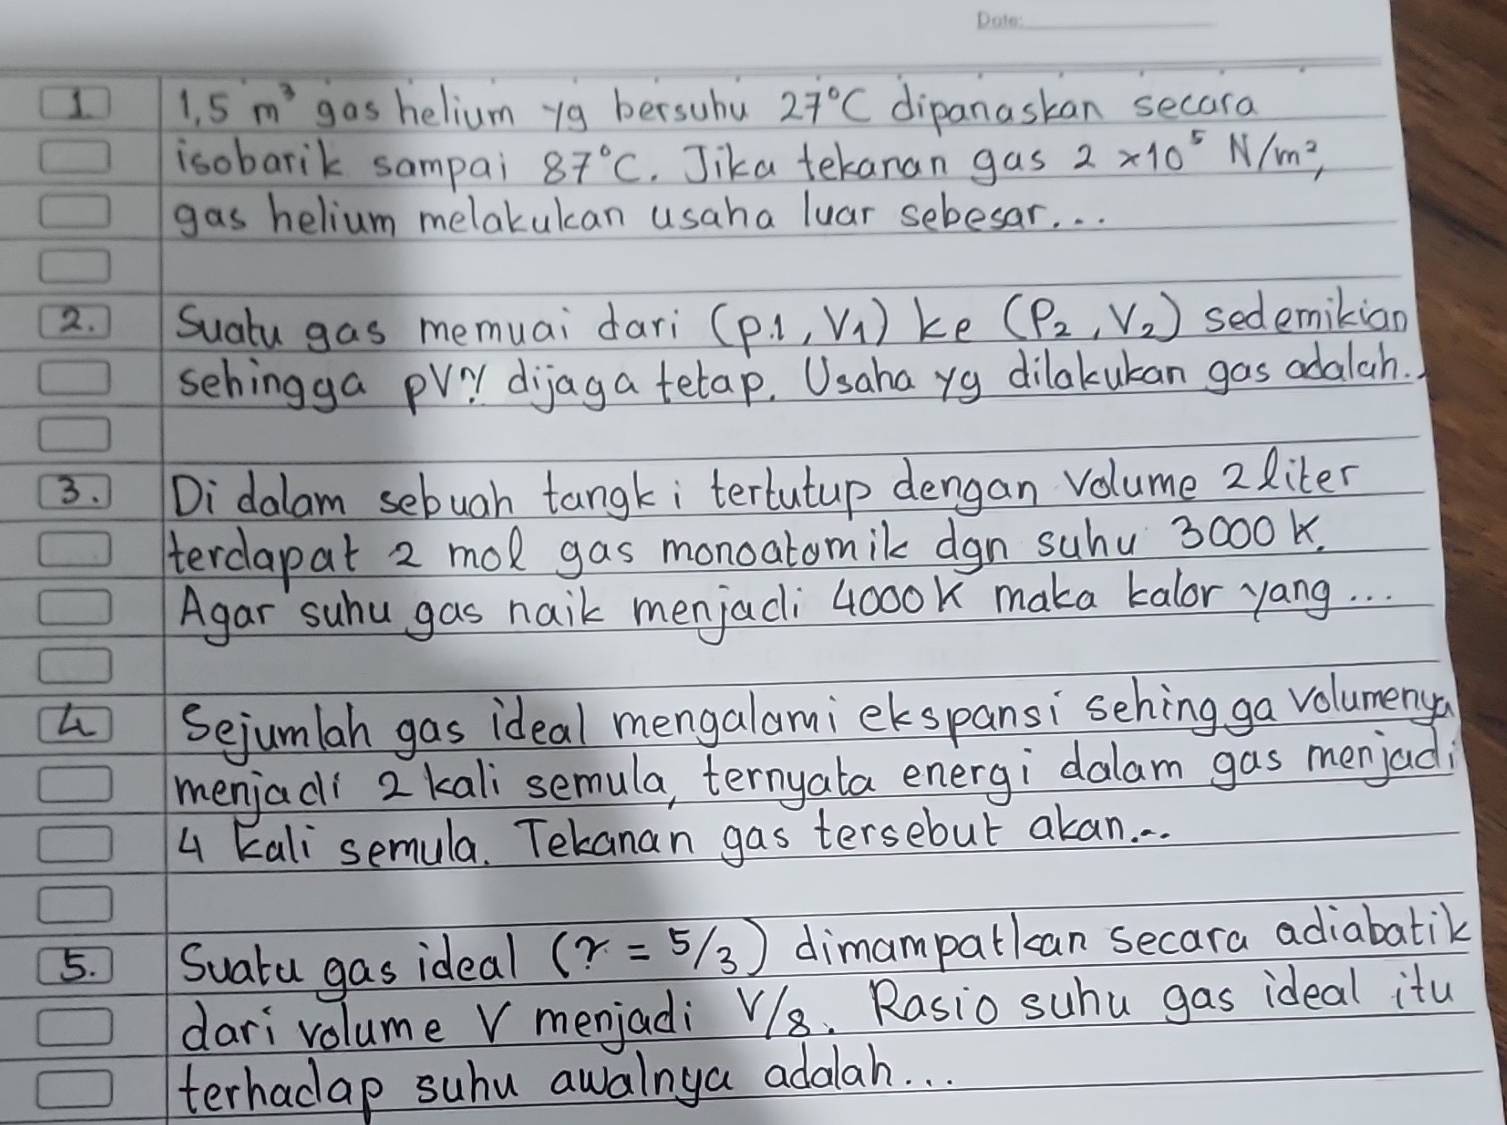 Date:
1 1,5 m³ gas helium yg bersuhu 27°C dipanaskan secara
isobarik sampai 87°C. Jika tekanan gas 2 × 10⁵ N/m²,
gas helium melakukan usaha luar sebesar...
2. Suatu gas memuai dari (p.1, V1) ke (P2, V2) sedemikian
sehingga pVγ dijaga tetap. Usaha yg dilakukan gas adalah..
3. Di dalam sebuah tangki tertutup dengan volume 2 liter
terdapat 2 mol gas monoatomik dgn suhu 3000 K.
Agar suhu gas naik menjadi 4000K maka kalor yang ...
4 Sejumlah gas ideal mengalami ekspansi sehingga volumenya
menjadi 2 kali semula, ternyata energi dalam gas menjadi
4 kali semula. Tekanan gas tersebut akan...
5. Suatu gas ideal (γ = 5/3) dimampatkan secara adiabatik
dari volume V menjadi V/8. Rasio suhu gas ideal itu
terhadap suhu awalnya adalah...